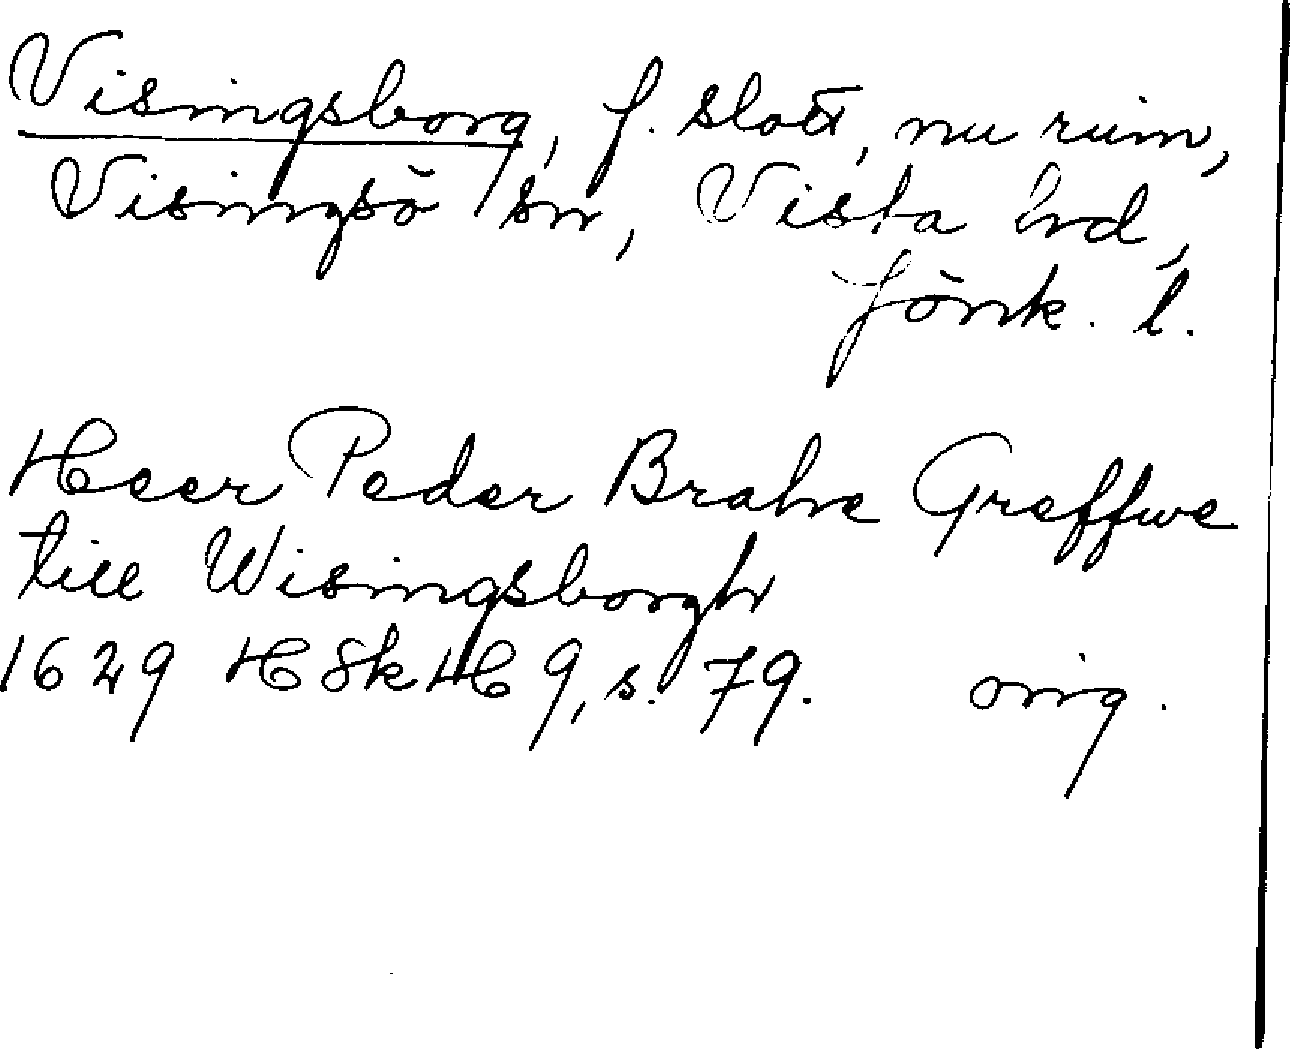 Visingsborg, f. slott, nu ruin,
Visingsö sn, Vista hd,
Jönk. l.
Heer Peder Brahe Greffwe
till Wisingsborgh
1629 HSkH 9, s. 79. orig.